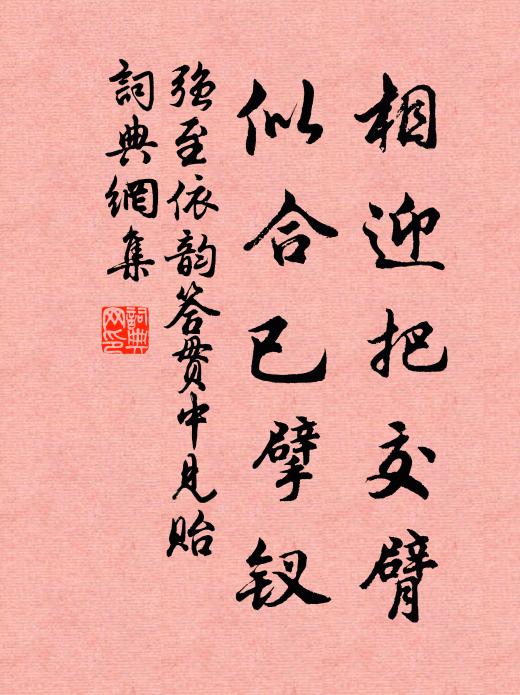 相迎把交臂
似合已擘钗
强至依韵答贯中见贻
詞典網集
詞典网印